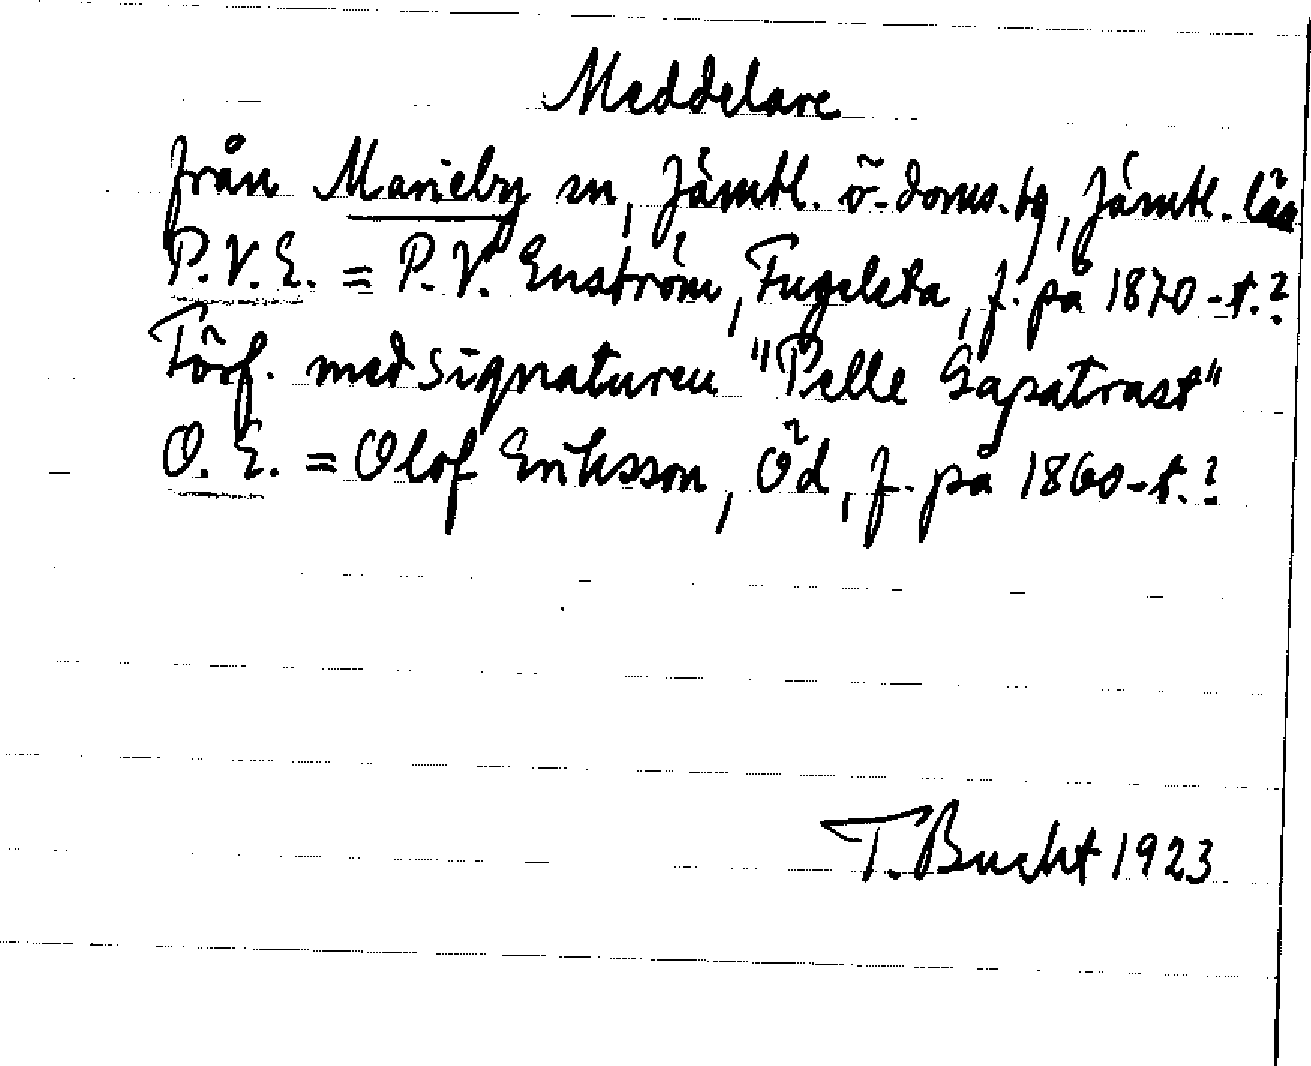 Meddelare
från Marieby sn, Jämtl. ö. doms. tg, Jämtl. län
P.V.E. = P.V. Enström, Fugelsta, f. på 1870-t.?
Förf. med signaturen "Pelle Gapatrast"
O.E. = Olof Eriksson, Öd, f. på 1860-t.?
T. Bucht 1923